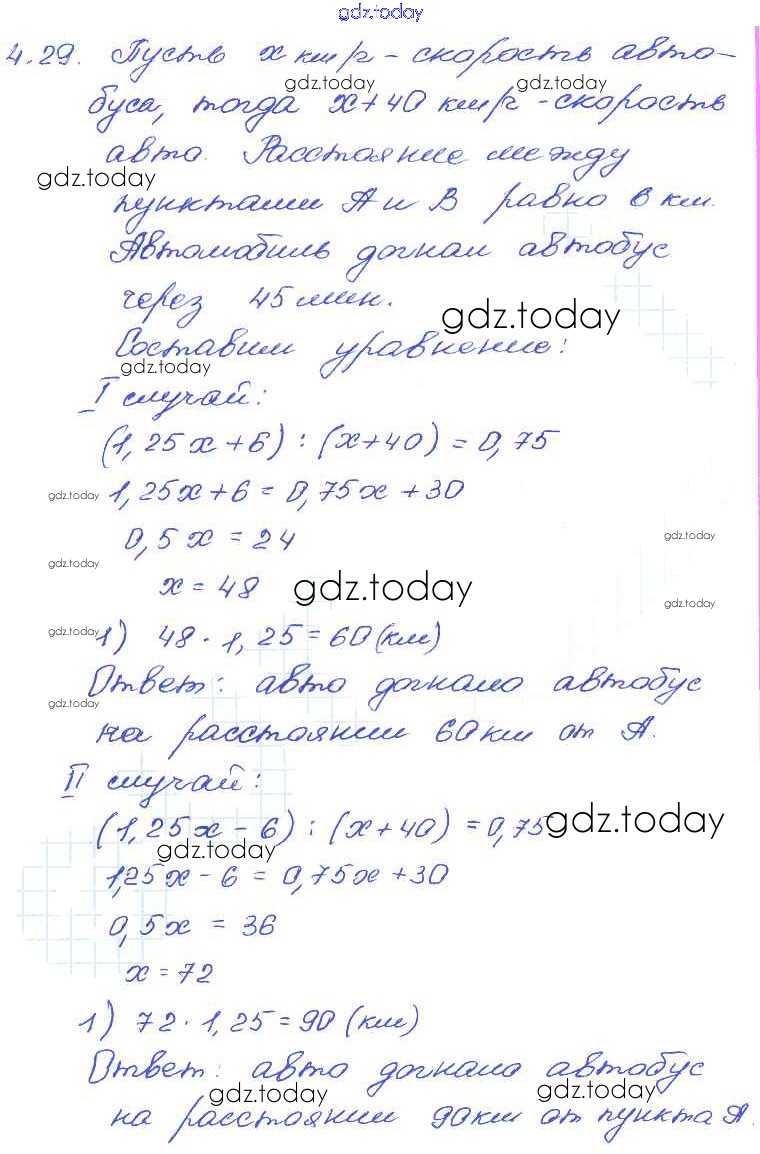 gdz.today
4.29. Пусть x км/ч - скорость авто-
gdz.today gdz.today
буса, тогда x+40 км/ч - скорость
авто. Расстояние между
gdz.today
пунктами A и B равно 6 км.
Автомобиль догнал автобус
через 45 мин.
gdz.today
Составим уравнение:
gdz.today
I случай:
(1,25x+6) : (x+40) = 0,75
gdz.today 1,25x+6 = 0,75x+30
0,5x = 24 gdz.today
gdz.today
x = 48 gdz.today gdz.today
gdz.today 1) 48 · 1,25 = 60 (км)
Ответ: авто догнало автобус
gdz.today
на расстоянии 60 км от A.
II случай:
(1,25x - 6) : (x+40) = 0,75 gdz.today
gdz.today
1,25x - 6 = 0,75x + 30
0,5x = 36
x = 72
1) 72 · 1,25 = 90 (км)
Ответ: авто догнало автобус
gdz.today gdz.today
на расстоянии 90 км от пункта A.